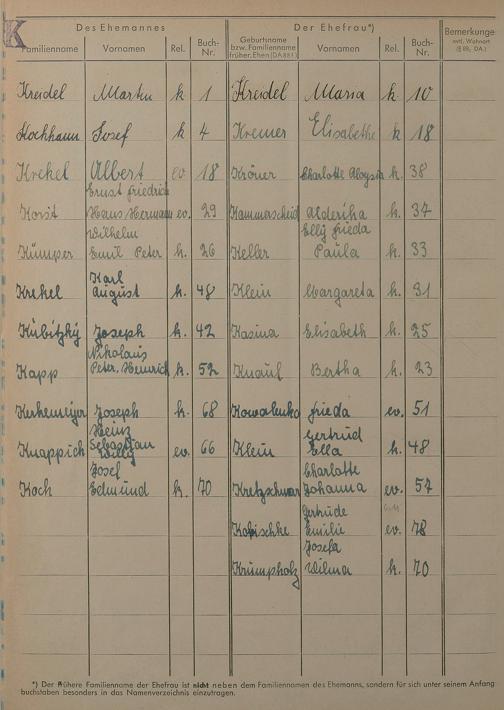 K
Des Ehemannes Der Ehefrau*)
Familienname Vornamen Rel. Buch-Nr. Geburtsname bzw. Familienname früher. Ehen (DA 881) Vornamen Rel. Buch-Nr. Bemerkunge evtl. Wohnort (§ 88, DA.)
Kreidel Martin k 1 Kreidel Maria k 10
Kochhann Josef k 4 Kremer Elisabethe k 18
Krekel Albert ev 18 Kröner Charlotte Aloysia k. 38
Ernst Friedrich
Korst Hans Hermann ev. 29 Kammerscheid Alderika k. 37
Wilhelm Elly Frieda
Kümper Emil Peter k. 26 Keller Paula k. 33
Karl
Krekel August k. 48 Klein Margareta k. 31
Kubitzky Joseph k. 42 Kasina Elisabeth k. 25
Nikolaus
Kapp Peter, Heinrich k. 52 Knauf Bertha k. 23
Kerkemeijer Joseph k. 68 Kowalenko Frieda ev. 51
Heinz Gertrud
Knappich Sebastian Willy ev. 66 Klein Ella k. 48
Josef Charlotte
Koch Edmund k. 70 Kretzschmar Johanna ev. 57
Gertrude
Kobischke Emilie ev. 78
Josefa
Krumpholz Wilma k. 70
*) Der frühere Familienname der Ehefrau ist nicht neben dem Familiennamen des Ehemanns, sondern für sich unter seinem Anfang
buchstaben besonders in das Namenverzeichnis einzutragen.